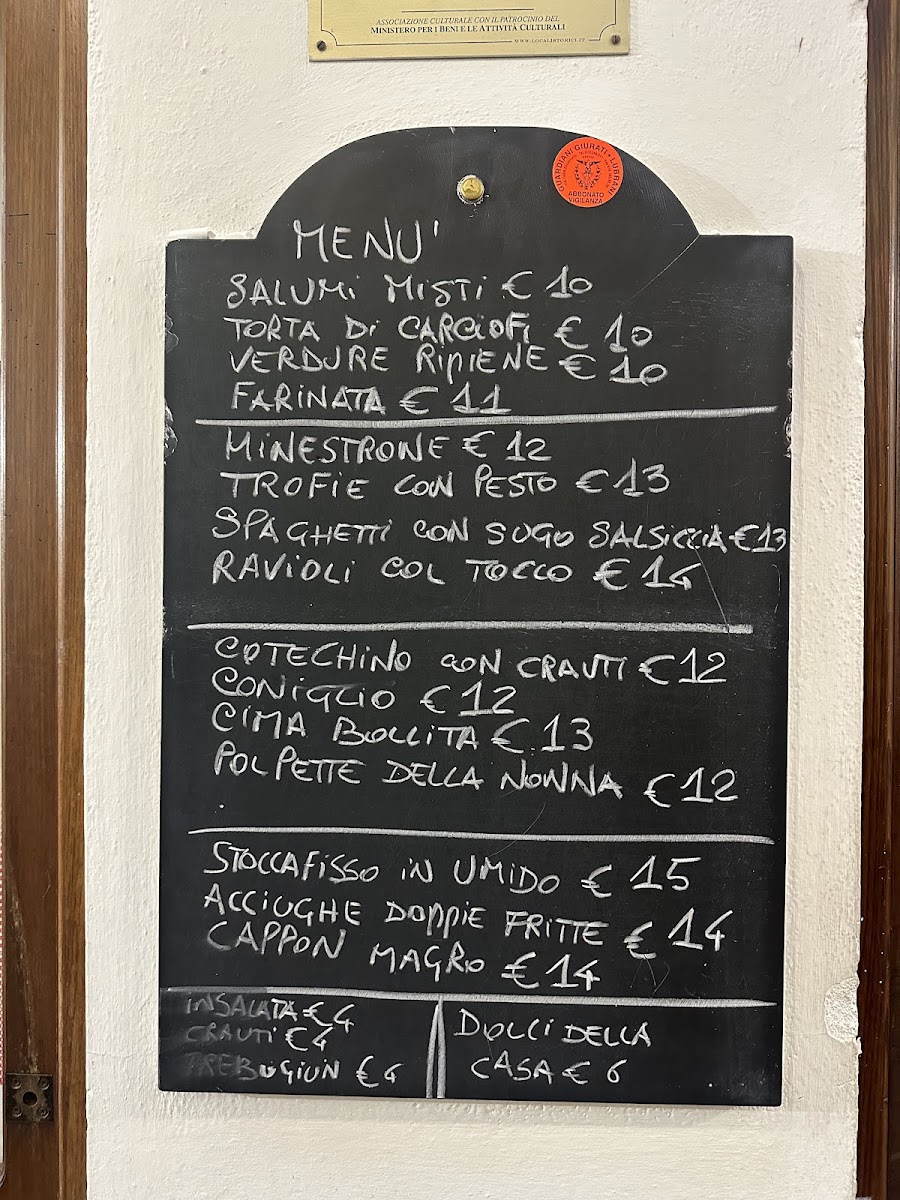 ASSOCIAZIONE CULTURALE CON IL PATROCINIO DEL
MINISTERO PER I BENI E LE ATTIVITÀ CULTURALI
WWW.LOCALISTORICI.IT
GUARDIANI GIURATI • LUBRANI
ABBONATO
VIGILANZA
MENU'
SALUMI MISTI € 10
TORTA DI CARCIOFI € 10
VERDURE RIPIENE € 10
FARINATA € 11
MINESTRONE € 12
TROFIE CON PESTO € 13
SPAGHETTI CON SUGO SALSICCIA € 13
RAVIOLI COL TOCCO € 14
COTECHINO CON CRAUTI € 12
CONIGLIO € 12
CIMA BOLLITA € 13
POLPETTE DELLA NONNA € 12
STOCCAFISSO IN UMIDO € 15
ACCIUGHE DOPPIE FRITTE € 14
CAPPON MAGRO € 14
INSALATA € 4
CRAUTI € 4
PREBUGIUN €
DOLCI DELLA
CASA € 6